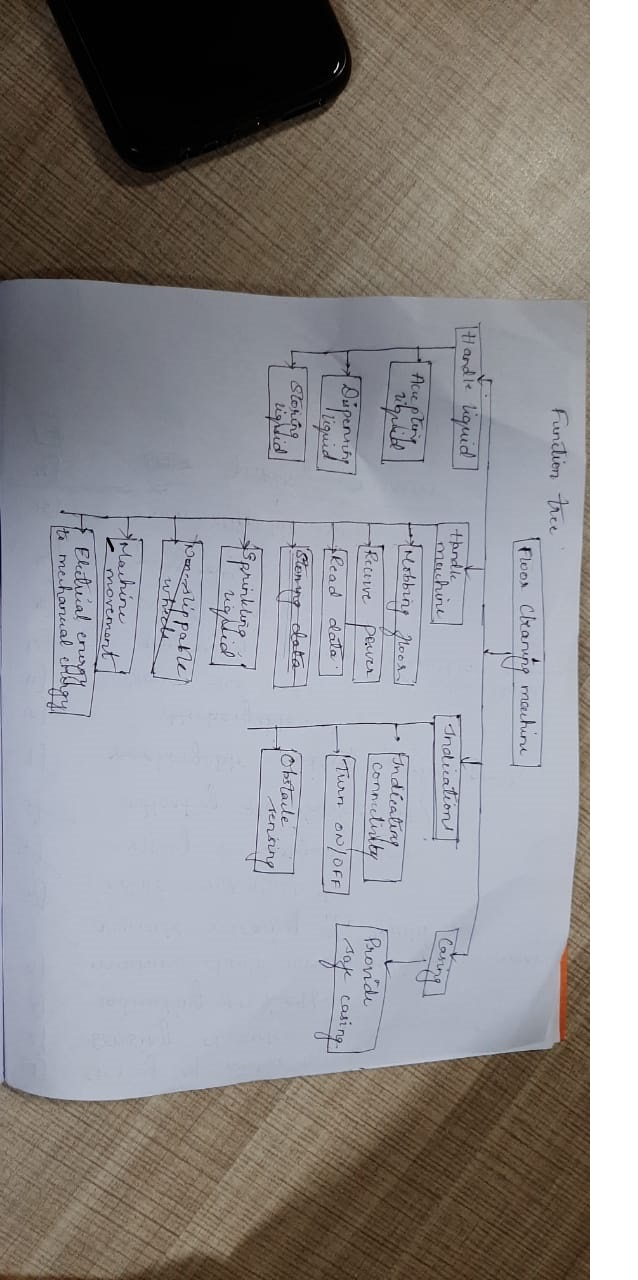 Function tree
Floor cleaning machine
Handle liquid
Accepting
liquid
Dispensing
liquid
Storing
liquid
Handle
machine
Mobbing floor
Receive power
Read data
Storing data
Sprinkling
liquid
Non-slippable
Machine
movement
Electrical energy
to mechanical energy
Indications
Indicating
connectivity
Turn ON/OFF
Obstacle
sensing
Casing
Provide
safe casing.